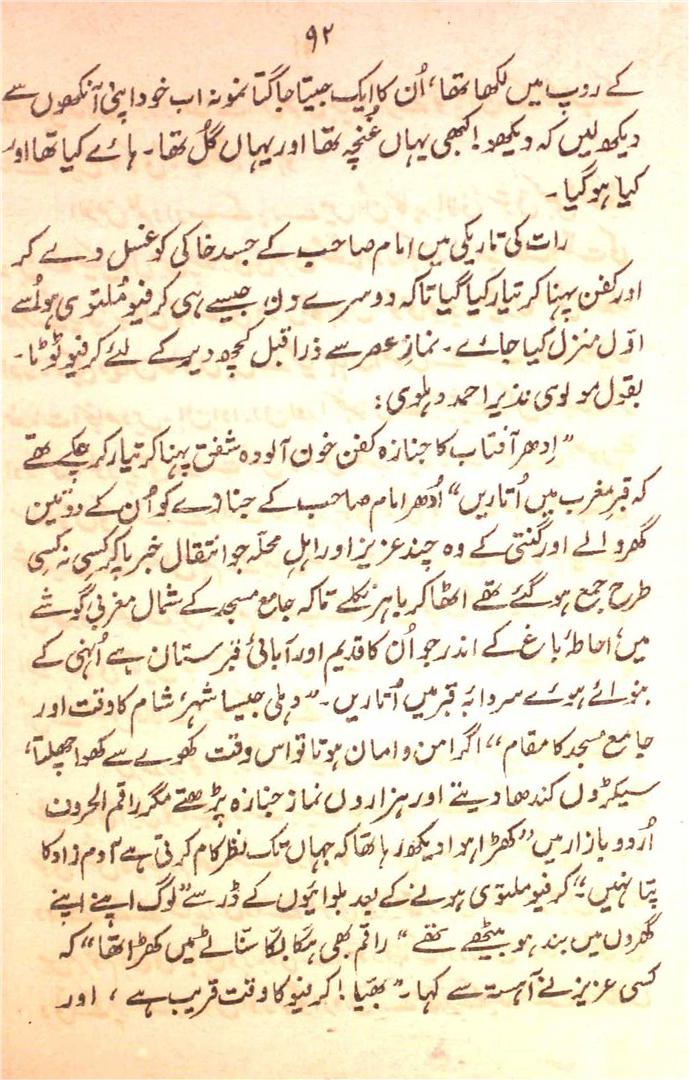 ۹۲
کے روپ میں لکھا تھا، اُن کا ایک جیتا جاگتا نمونہ اب خود اپنی آنکھوں سے
دیکھ لیں کہ دیکھو! کبھی یہاں غُنچہ تھا اور یہاں گُل تھا۔ ہائے کیا تھا اور
کیا ہو گیا۔
رات کی تاریکی میں امام صاحب کے جسد خاکی کو غسل دے کر
اور کفن پہنا کر تیار کیا گیا تاکہ دوسرے دن جیسے ہی کرفیو مُلتوی ہو اُسے
اوّل منزل کیا جائے۔ نمازِ عصر سے ذرا قبل کچھ دیر کے لئے کرفیو ٹوٹا۔
بقول مولوی نذیر احمد دہلوی:
”اِدھر آفتاب کا جنازہ کفن خون آلودہ شفق پہنا کر تیار کر چکے تھے
کہ قبرِ مغرب میں اُتاریں“ اُدھر امام صاحب کے جنازے کو اُن کے دو تین
گھر والے اور گنتی کے وہ چند عزیز اور اہلِ محلّہ جو انتقال خبر پا کر کسی نہ کسی
طرح جمع ہو گئے تھے اٹھا کر باہر نکلے تاکہ جامع مسجد کے شمال مغربی گوشے
میں احاطۂ باغ کے اندر جو اُن کا قدیم اور آبائی قبرستان ہے اُنہی کے
بنوائے ہوئے سردابہ قبر میں اُتاریں۔ ”دہلی جیسا شہر، شام کا وقت اور
جامع مسجد کا مقام“ اگر امن و امان ہوتا تو اس وقت کھوے سے کھوا چھلتا،
سیکڑوں کندھا دیتے اور ہزاروں نماز جنازہ پڑھتے مگر راقم الحروف
اُردو بازار میں ”کھڑا ہوا دیکھ رہا تھا کہ جہاں تک نظر کام کرتی ہے آدم زاد کا
پتا نہیں“ کرفیو ملتوی ہونے کے بعد بلوائیوں کے ڈر سے ”لوگ اپنے اپنے
گھروں میں بند ہو بیٹھے تھے“ راقم بھی ہکّا بکّا سنّاٹے میں کھڑا تھا“ کہ
کسی عزیز نے آہستہ سے کہا۔ ”بھیّا! کرفیو کا وقت قریب ہے، اور